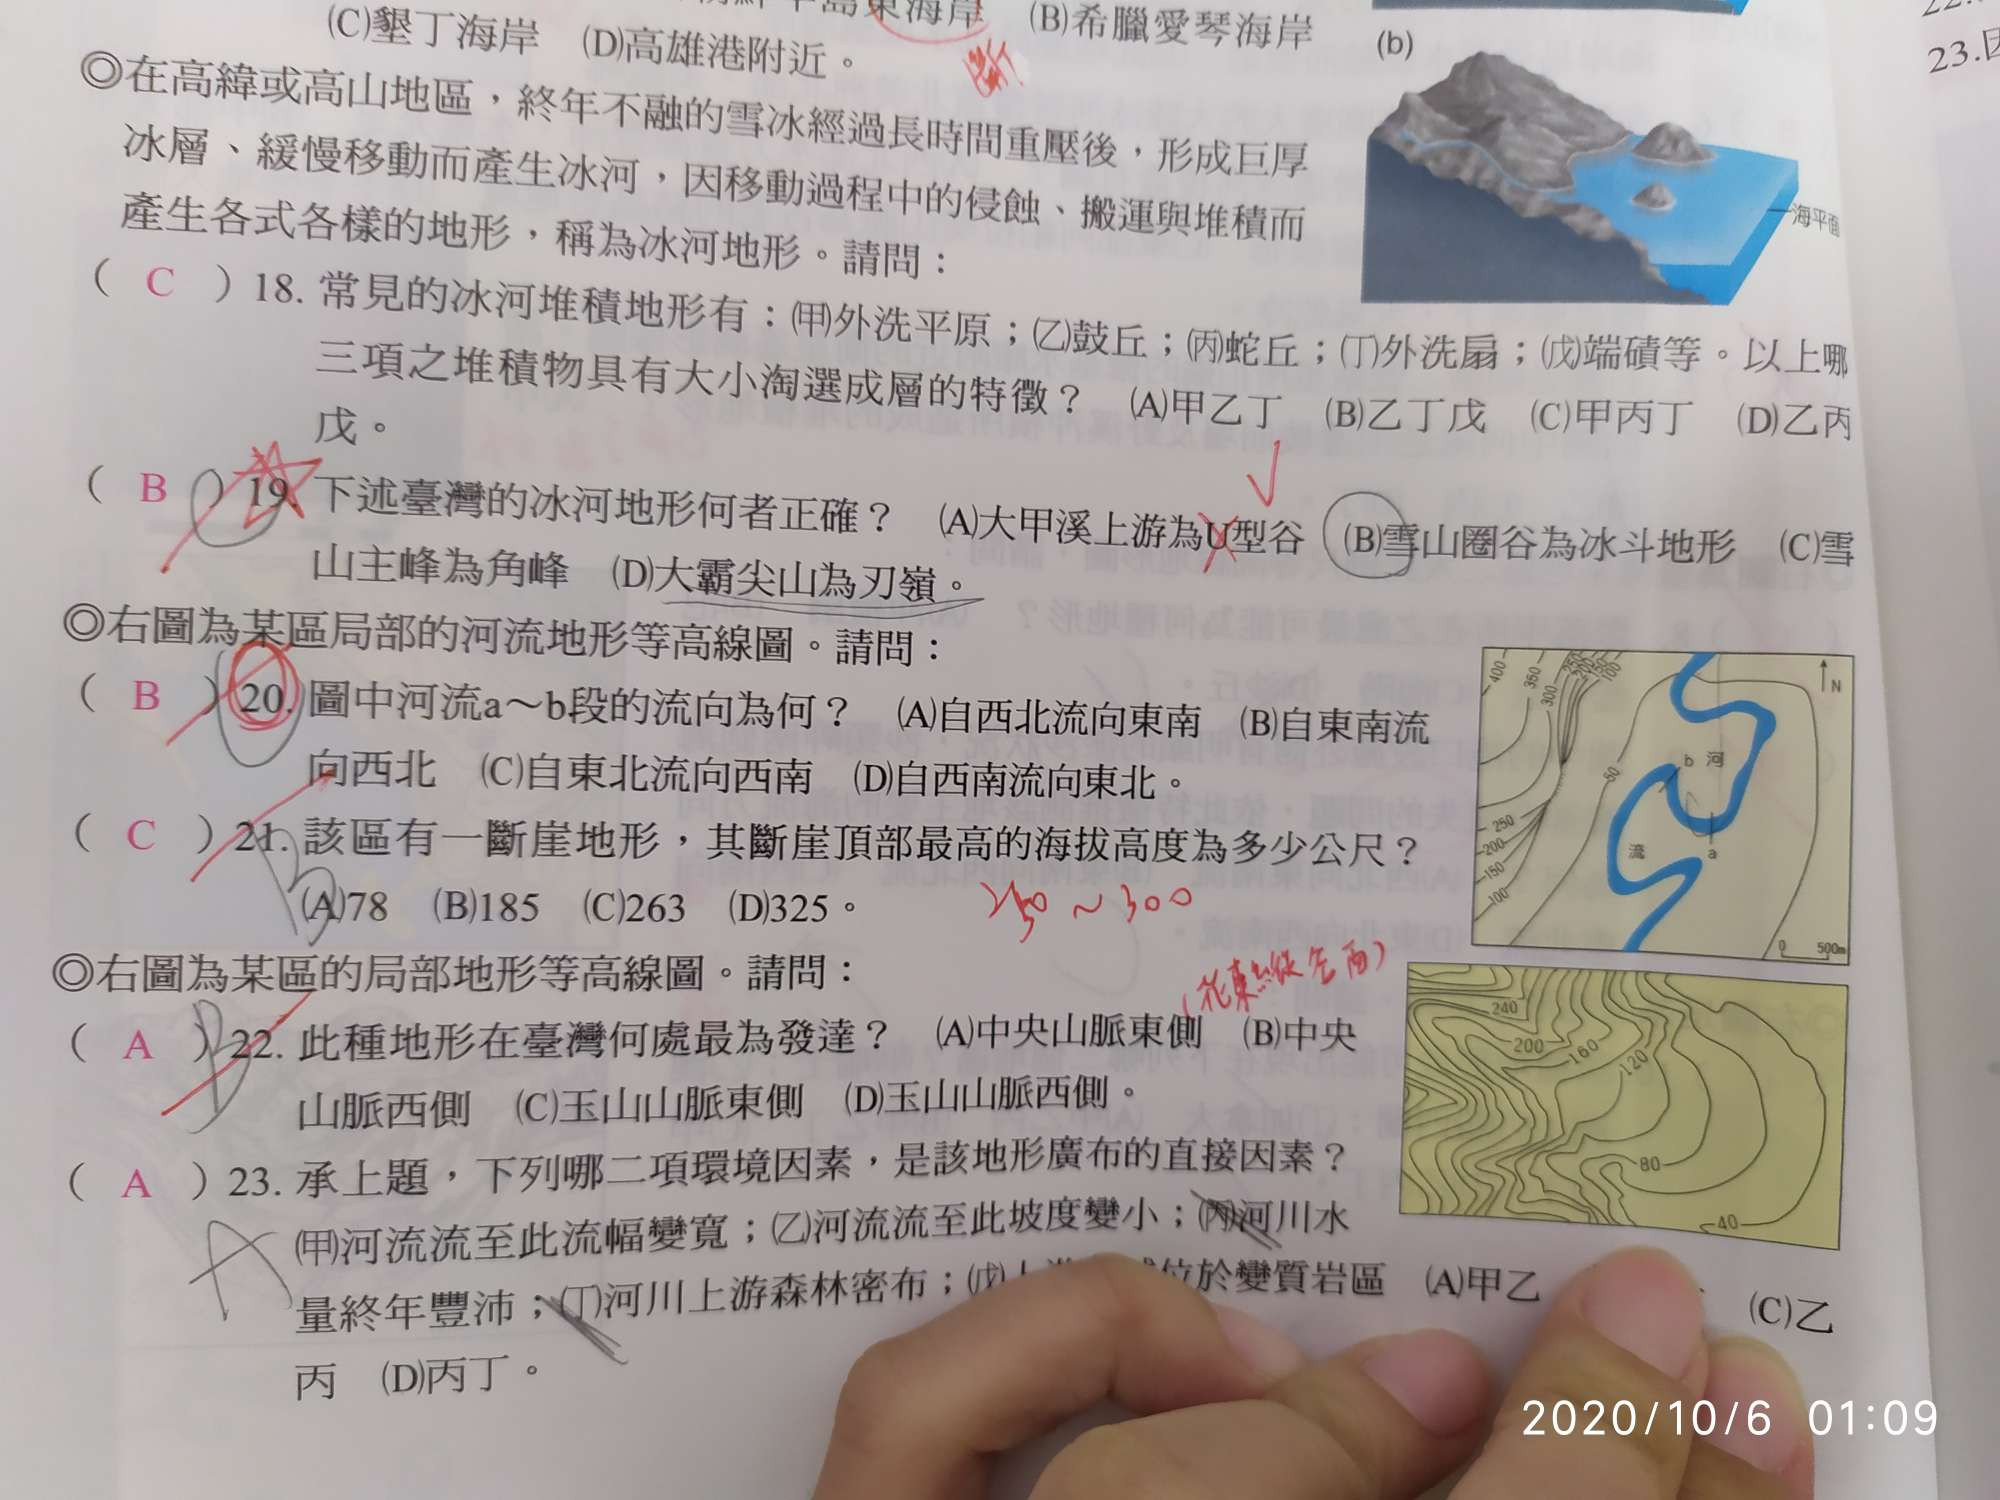 東海岸 (B)希臘愛琴海岸
(C)墾丁海岸 (D)高雄港附近。
斷
(b)
22.
23.因
◎在高緯或高山地區，終年不融的雪冰經過長時間重壓後，形成巨厚
冰層、緩慢移動而產生冰河，因移動過程中的侵蝕、搬運與堆積而
產生各式各樣的地形，稱為冰河地形。請問：
海平面
( C ) 18. 常見的冰河堆積地形有：(甲)外洗平原；(乙)鼓丘；(丙)蛇丘；(丁)外洗扇；(戊)端磧等。以上哪
三項之堆積物具有大小淘選成層的特徵？ (A)甲乙丁 (B)乙丁戊 (C)甲丙丁 (D)乙丙
戊。
( B ) 19. 下述臺灣的冰河地形何者正確？ (A)大甲溪上游為U型谷 (B)雪山圈谷為冰斗地形 (C)雪
山主峰為角峰 (D)大霸尖山為刃嶺。
◎右圖為某區局部的河流地形等高線圖。請問：
( B ) 20. 圖中河流a～b段的流向為何？ (A)自西北流向東南 (B)自東南流
向西北 (C)自東北流向西南 (D)自西南流向東北。
( C ) 21. 該區有一斷崖地形，其斷崖頂部最高的海拔高度為多少公尺？
B
(A)78 (B)185 (C)263 (D)325。
250～300
400 350 300 250 200 150 100
N
50
b 河
流 a
250
200
150
100
0 500m
◎右圖為某區的局部地形等高線圖。請問：
(花東縱谷西)
( A ) 22. 此種地形在臺灣何處最為發達？ (A)中央山脈東側 (B)中央
B
山脈西側 (C)玉山山脈東側 (D)玉山山脈西側。
240
200
160
120
80
40
( A ) 23. 承上題，下列哪二項環境因素，是該地形廣布的直接因素？
A
(甲)河流流至此流幅變寬；(乙)河流流至此坡度變小；(丙)河川水
量終年豐沛；(丁)河川上游森林密布；(戊)上 位於變質岩區 (A)甲乙 (C)乙
丙 (D)丙丁。
2020/10/6 01:09